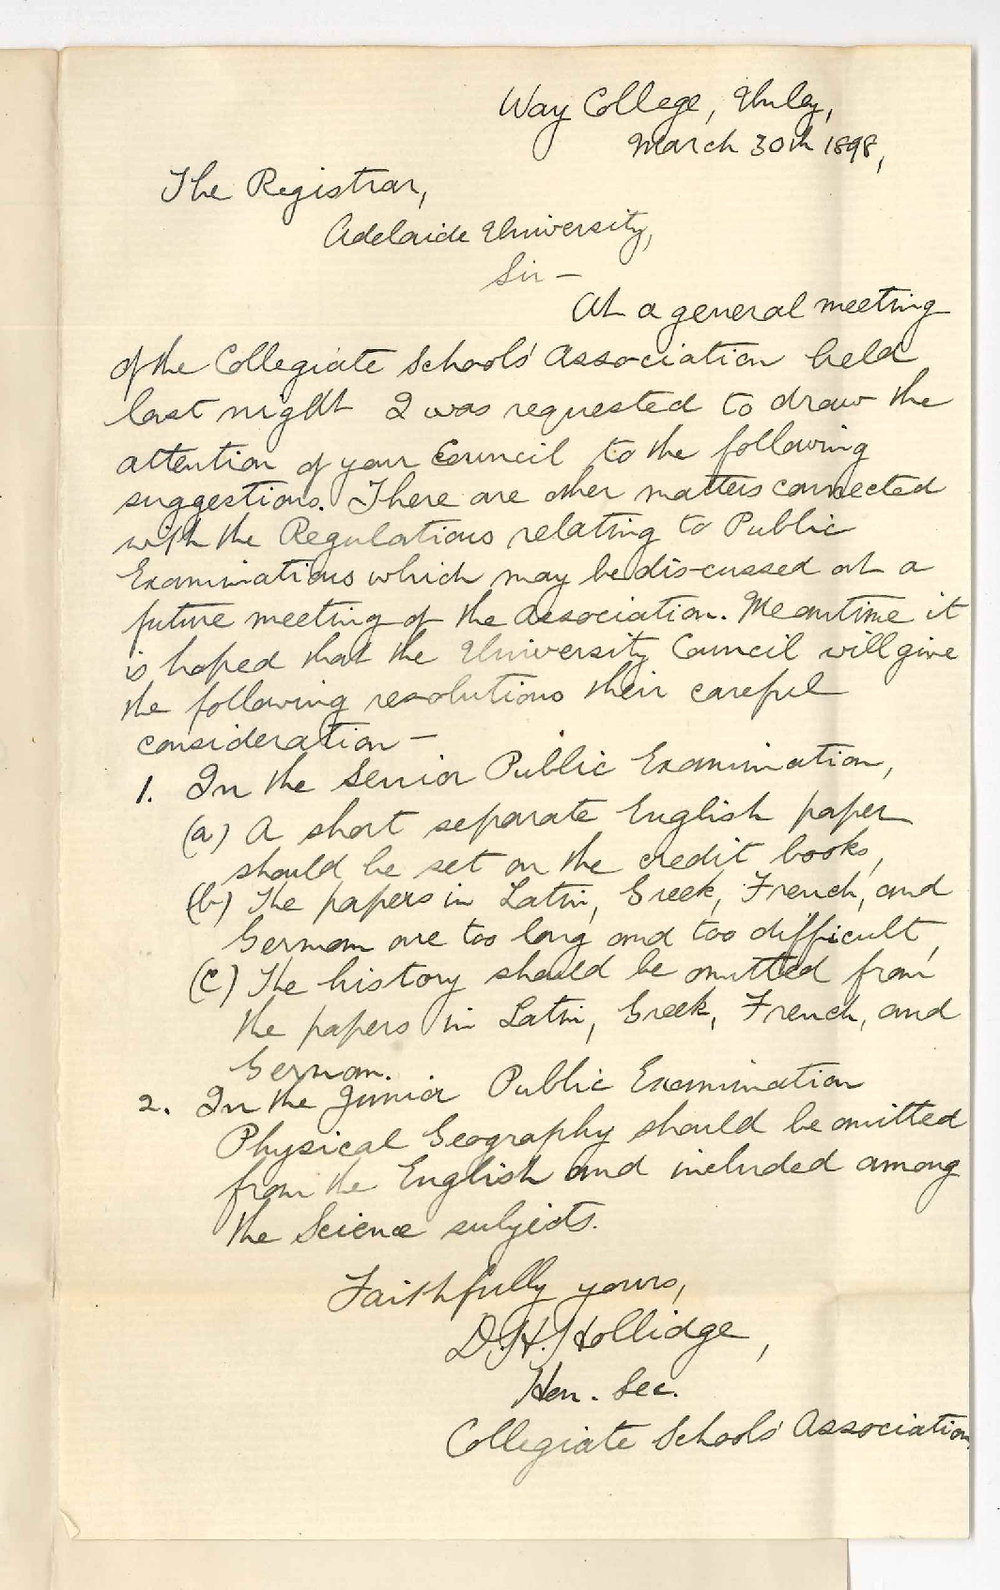 Way College, Unley,
March 30th 1898,
The Registrar,
Adelaide University,
Sir —
At a general meeting
of the Collegiate Schools' Association held
last night I was requested to draw the
attention of your Council to the following
suggestions. There are other matters connected
with the Regulations relating to Public
Examinations which may be discussed at a
future meeting of the Association. Meantime it
is hoped that the University Council will give
the following resolutions their careful
consideration —
1. In the Senior Public Examination,
(a) A short separate English paper
should be set on the credit books,
(b) The papers in Latin, Greek, French, and
German are too long and too difficult,
(c) The history should be omitted from
the papers in Latin, Greek, French, and
German.
2. In the Junior Public Examination
Physical Geography should be omitted
from the English and included among
the Science subjects.
Faithfully yours,
D. H. Hollidge,
Hon. Sec.
Collegiate Schools' Association.